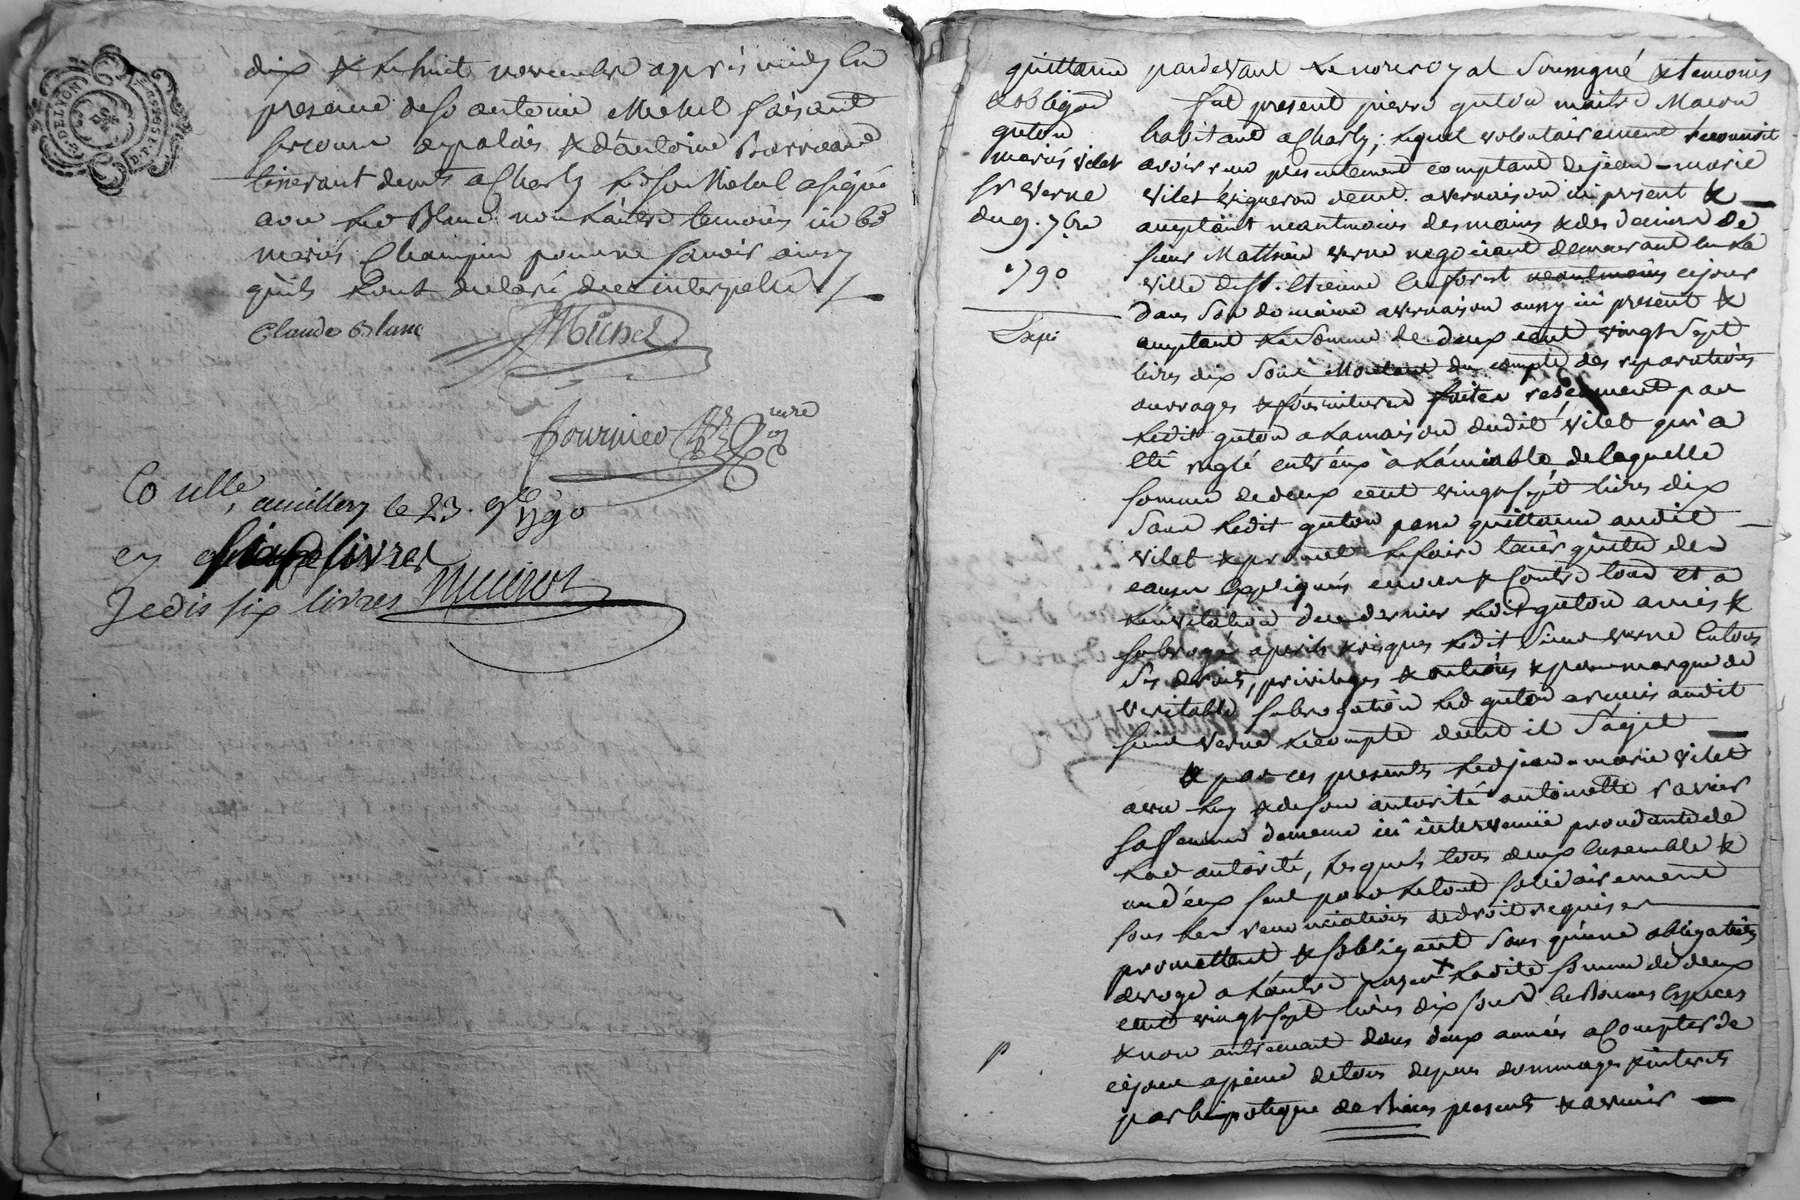 dix & le huit novembre après midy en
presence de sr antoine Michel faisant
au palais & d'antoine
demt a Charly led sr Michel a signé
avec led Blanc non l'autre temoins ni les
mariés Champin pour ne savoir ainsy
qu'ils l'ont declaré de ce interpellés
Claude Blanc
AMichel
Fournier
Con llé, a millery le 23. 9bre 1790
en six livres
Je dis six livres
quittance
& obligaon
guton
mariés vilet
sr verne
du 9. 7bre
1790
Expé
pardevant le nore royal soussigné & temoins
fut present pierre guton maitre Macon
habitant a Charly; lequel volontairement reconnoit
avoir reçu presentement comptant de jean-marie
vilet vigneron demt. a vernaison ici present &
acceptant neantmoins des mains & des deniers de
sieur Matthieu verne negociant demeurant en la
ville de st. etienne en forest neantmoins ce jour
dans son domaine a vernaison aussy ici present &
acceptant la somme de deux cent vingt sept
livres dix sous Montant du compte des reparations
ouvrages & fournitures faites recemment par
ledit guton a la maison dudit vilet qui a
eté reglé entr'eux à l'amiable, de laquelle
somme de deux cent vingt sept livres dix
sous ledit guton passe quittance audit
vilet & promet le faire tenir quitte des
causes expliquées envers & contre tous et a
l'invitation de ce dernier ledit guton a mis &
subrogé a perils & risques ledit sieur verne en tous
ses droits, privileges & actions & pour marque de
veritable subrogation led guton a remis audit
sieur verne le compte dont il s'agit
& par ces presentes led jean-marie vilet
avec luy & de son autorité antoinette ravier
sa femme dememe ici intervenüe procedante de
lad autorité, lesquels tous deux ensemble &
un d'eux seul pour le tout solidairement
sous les renonciations de droit requises
promettent & s'obligent sans qu'une obligation
deroge a l'autre payer ladite somme de deux
cent vingt sept livres dix sous en bonnes especes
& non autrement dans deux années a compter de
ce jour a peine de tous depens dommages & interets
par hipoteque de biens presents & avenir